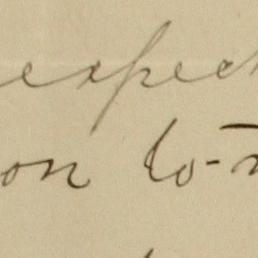 expec
on to-